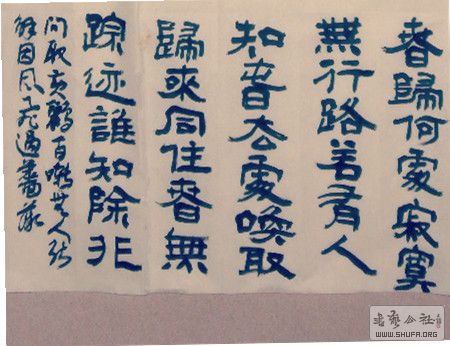 春歸何處寂寞
無行路若有人
知春去處喚取
歸來同住春無
踪迹誰知除非
問取黃鸝百囀無人能
解因風飛過薔薇
書藝公社
WWW.SHUFA.ORG